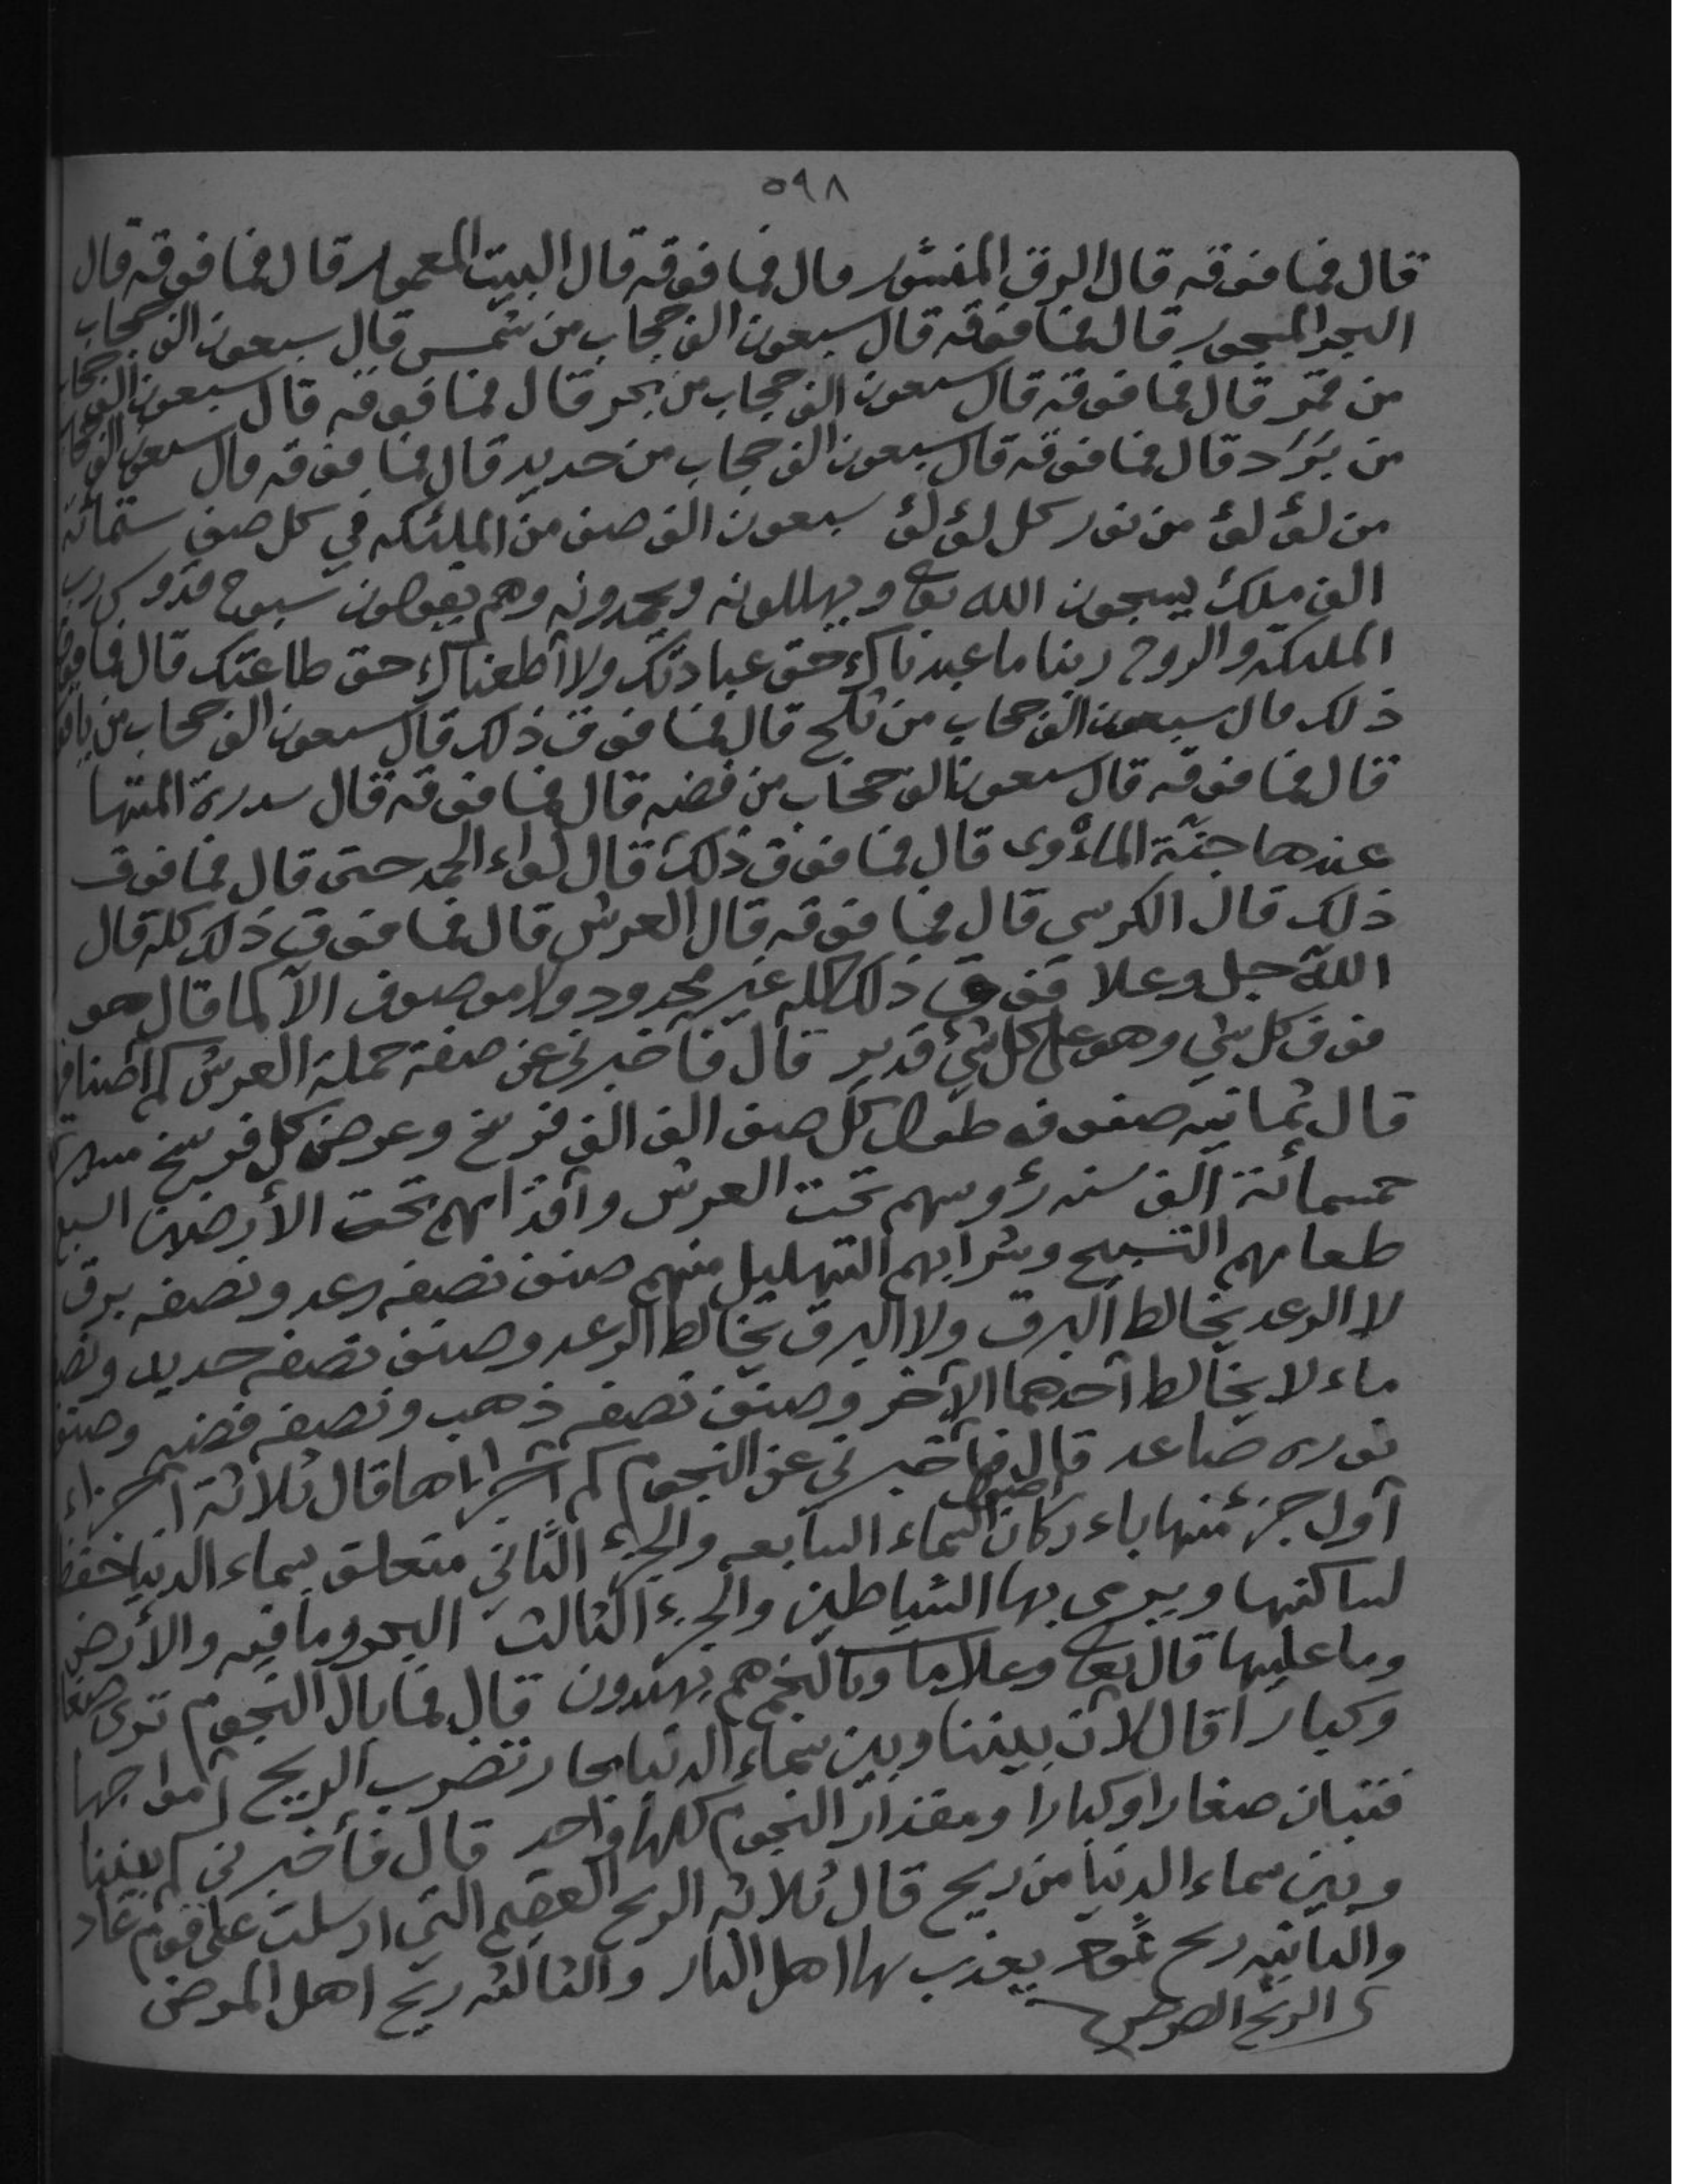 ٥٩٨
قال فما فوقه قال الرق المنشور قال فما فوقه قال البيت المعمور قال فما فوقه قال
البحر المسجور قال فما فوقه قال سبعون الف حجاب من شمس قال سبعون الف حجاب
من قمر قال فما فوقه قال سبعون الف حجاب من بحر قال فما فوقه قال سبعون الف حجاب
من بَرَد قال فما فوقه قال سبعون الف حجاب من حديد قال فما فوقه قال سبعون الف
من لؤلؤ من نور كل لؤلؤ سبعون الف صف من الملئكه في كل صف ستمائة
الف ملك يسبحون الله تع ويهللونه ويحمدونه وهم يقولون سبوح قدوس رب
الملئكه والروح ربنا ما عبدناك حق عبادتك ولا أطعناك حق طاعتك قال فما فوق
ذلك قال سبعون الف حجاب من ثلج قال فما فوق ذلك قال سبعون الف حجاب من
قال فما فوقه قال سبعون الف حجاب من فضه قال فما فوقه قال سدرة المنتها
عندها جنّة المأوى قال فما فوق ذلك قال لواء الحمد حتى قال فما فوق
ذلك قال الكرسي قال فما فوقه قال العرش قال فما فوق ذلك كله قال
الله جل وعلا فوق ذلك كله غير محدود ولا موصوف الّا كما قال هو
فوق كل شي وهو على كل شئ قدير قال فأخبرني عن صفة حملة العرش كم اصنافها
قال ثمانيه صفوفه طول كل صف الف الف فرسخ وعرض كل فرسخ مسيرة
خمسمائة ألف سنه رؤوسهم تحت العرش وأقدامهم تحت الأرضين السبع
طعامهم التسبيح وشرابهم التهليل منهم صنف نصفه رعد ونصفه برق
لا الرعد يخالط البرق ولا البرق يخالط الرعد وصنف نصفه حديد
ماء لا يخالط أحدهما الآخر وصنف نصفه ذهب ونصفه فضه وصنف
نوره صاعد قال فأخبرني عن النجوم كم اجزاءها قال ثلاثة أجزاء
أول جزء منها باء ركان السماء السابعه والجزء الثاني متعلق بسماء الدنيا
لساكنها ويرمى بها الشياطين والجزء الثالث البحر وما فيه والأرض
وما عليها قال تع وعلامات وبالنجم هم يهتدون قال فما بال النجوم ترى صغا
وكبارا قال لأن بيننا وبين سماء الدنيا بحار تضرب الريح أمواجها
فتبان صغارا وكبارا ومقدار النجوم كلها واحد قال فأخبرني كم بيننا
وبين سماء الدنيا من ريح قال ثلاثه الريح العقيم التي ارسلت على قوم عاد
والثانيه ريح يعذب بها اهل النار والثالثه ريح اهل المرض
الريح